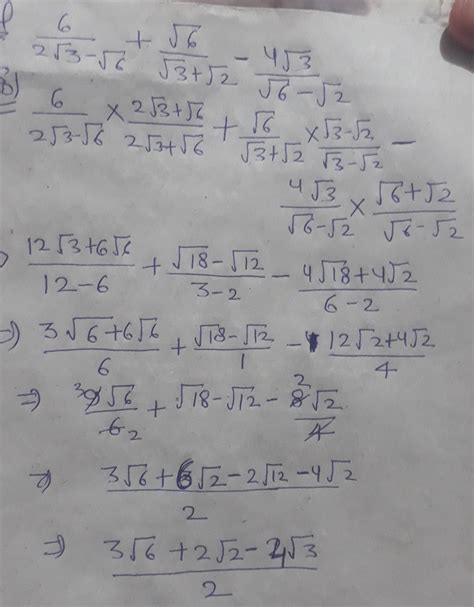 6/(2√3-√6) + √6/(√3+√2) - 4√3/(√6-√2)
6/(2√3-√6) × (2√3+√6)/(2√3+√6) + √6/(√3+√2) × (√3-√2)/(√3-√2) -
4√3/(√6-√2) × (√6+√2)/(√6-√2)
(12√3+6√6)/(12-6) + (√18-√12)/(3-2) - (4√18+4√2)/(6-2)
⇒ (3√6+6√6)/6 + (√18-√12)/1 - (12√2+4√2)/4
⇒ 9√6/6 + √18-√12 - 8√2/4
3 2 2
⇒ (3√6+6√2-2√12-4√2)/2
⇒ (3√6+2√2-4√3)/2